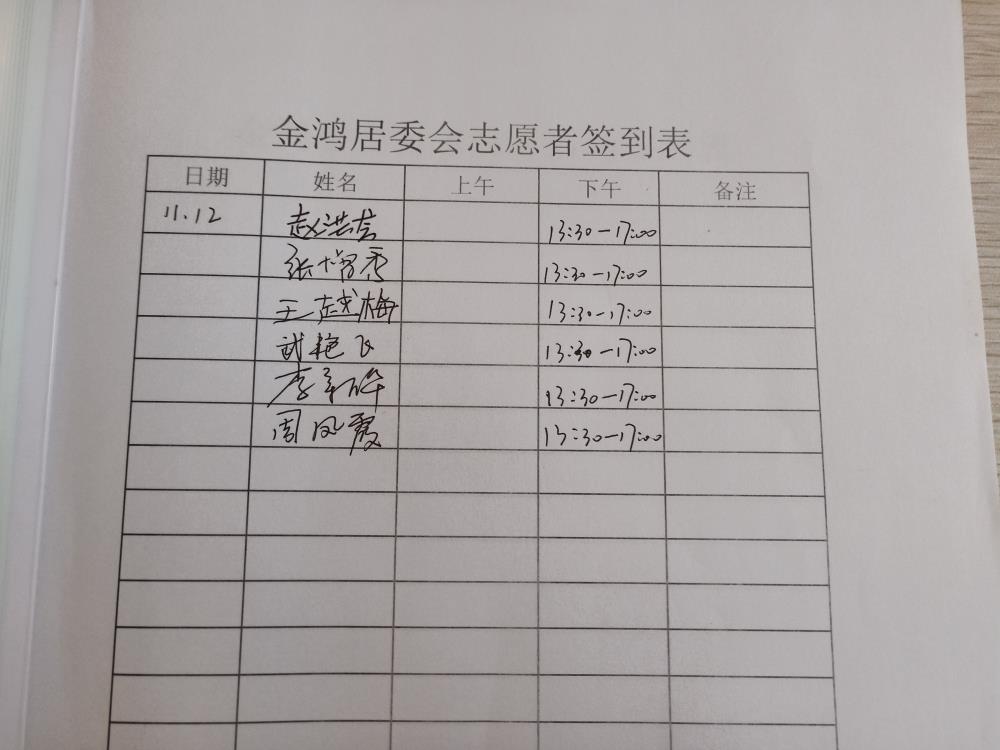 金鸿居委会志愿者签到表
日期 姓名 上午 下午 备注
11.12 赵洪 13:30-17:00
张增秀 13:30-17:00
王越梅 13:30-17:00
武艳飞 13:30-17:00
李 13:30-17:00
周凤霞 13:30-17:00